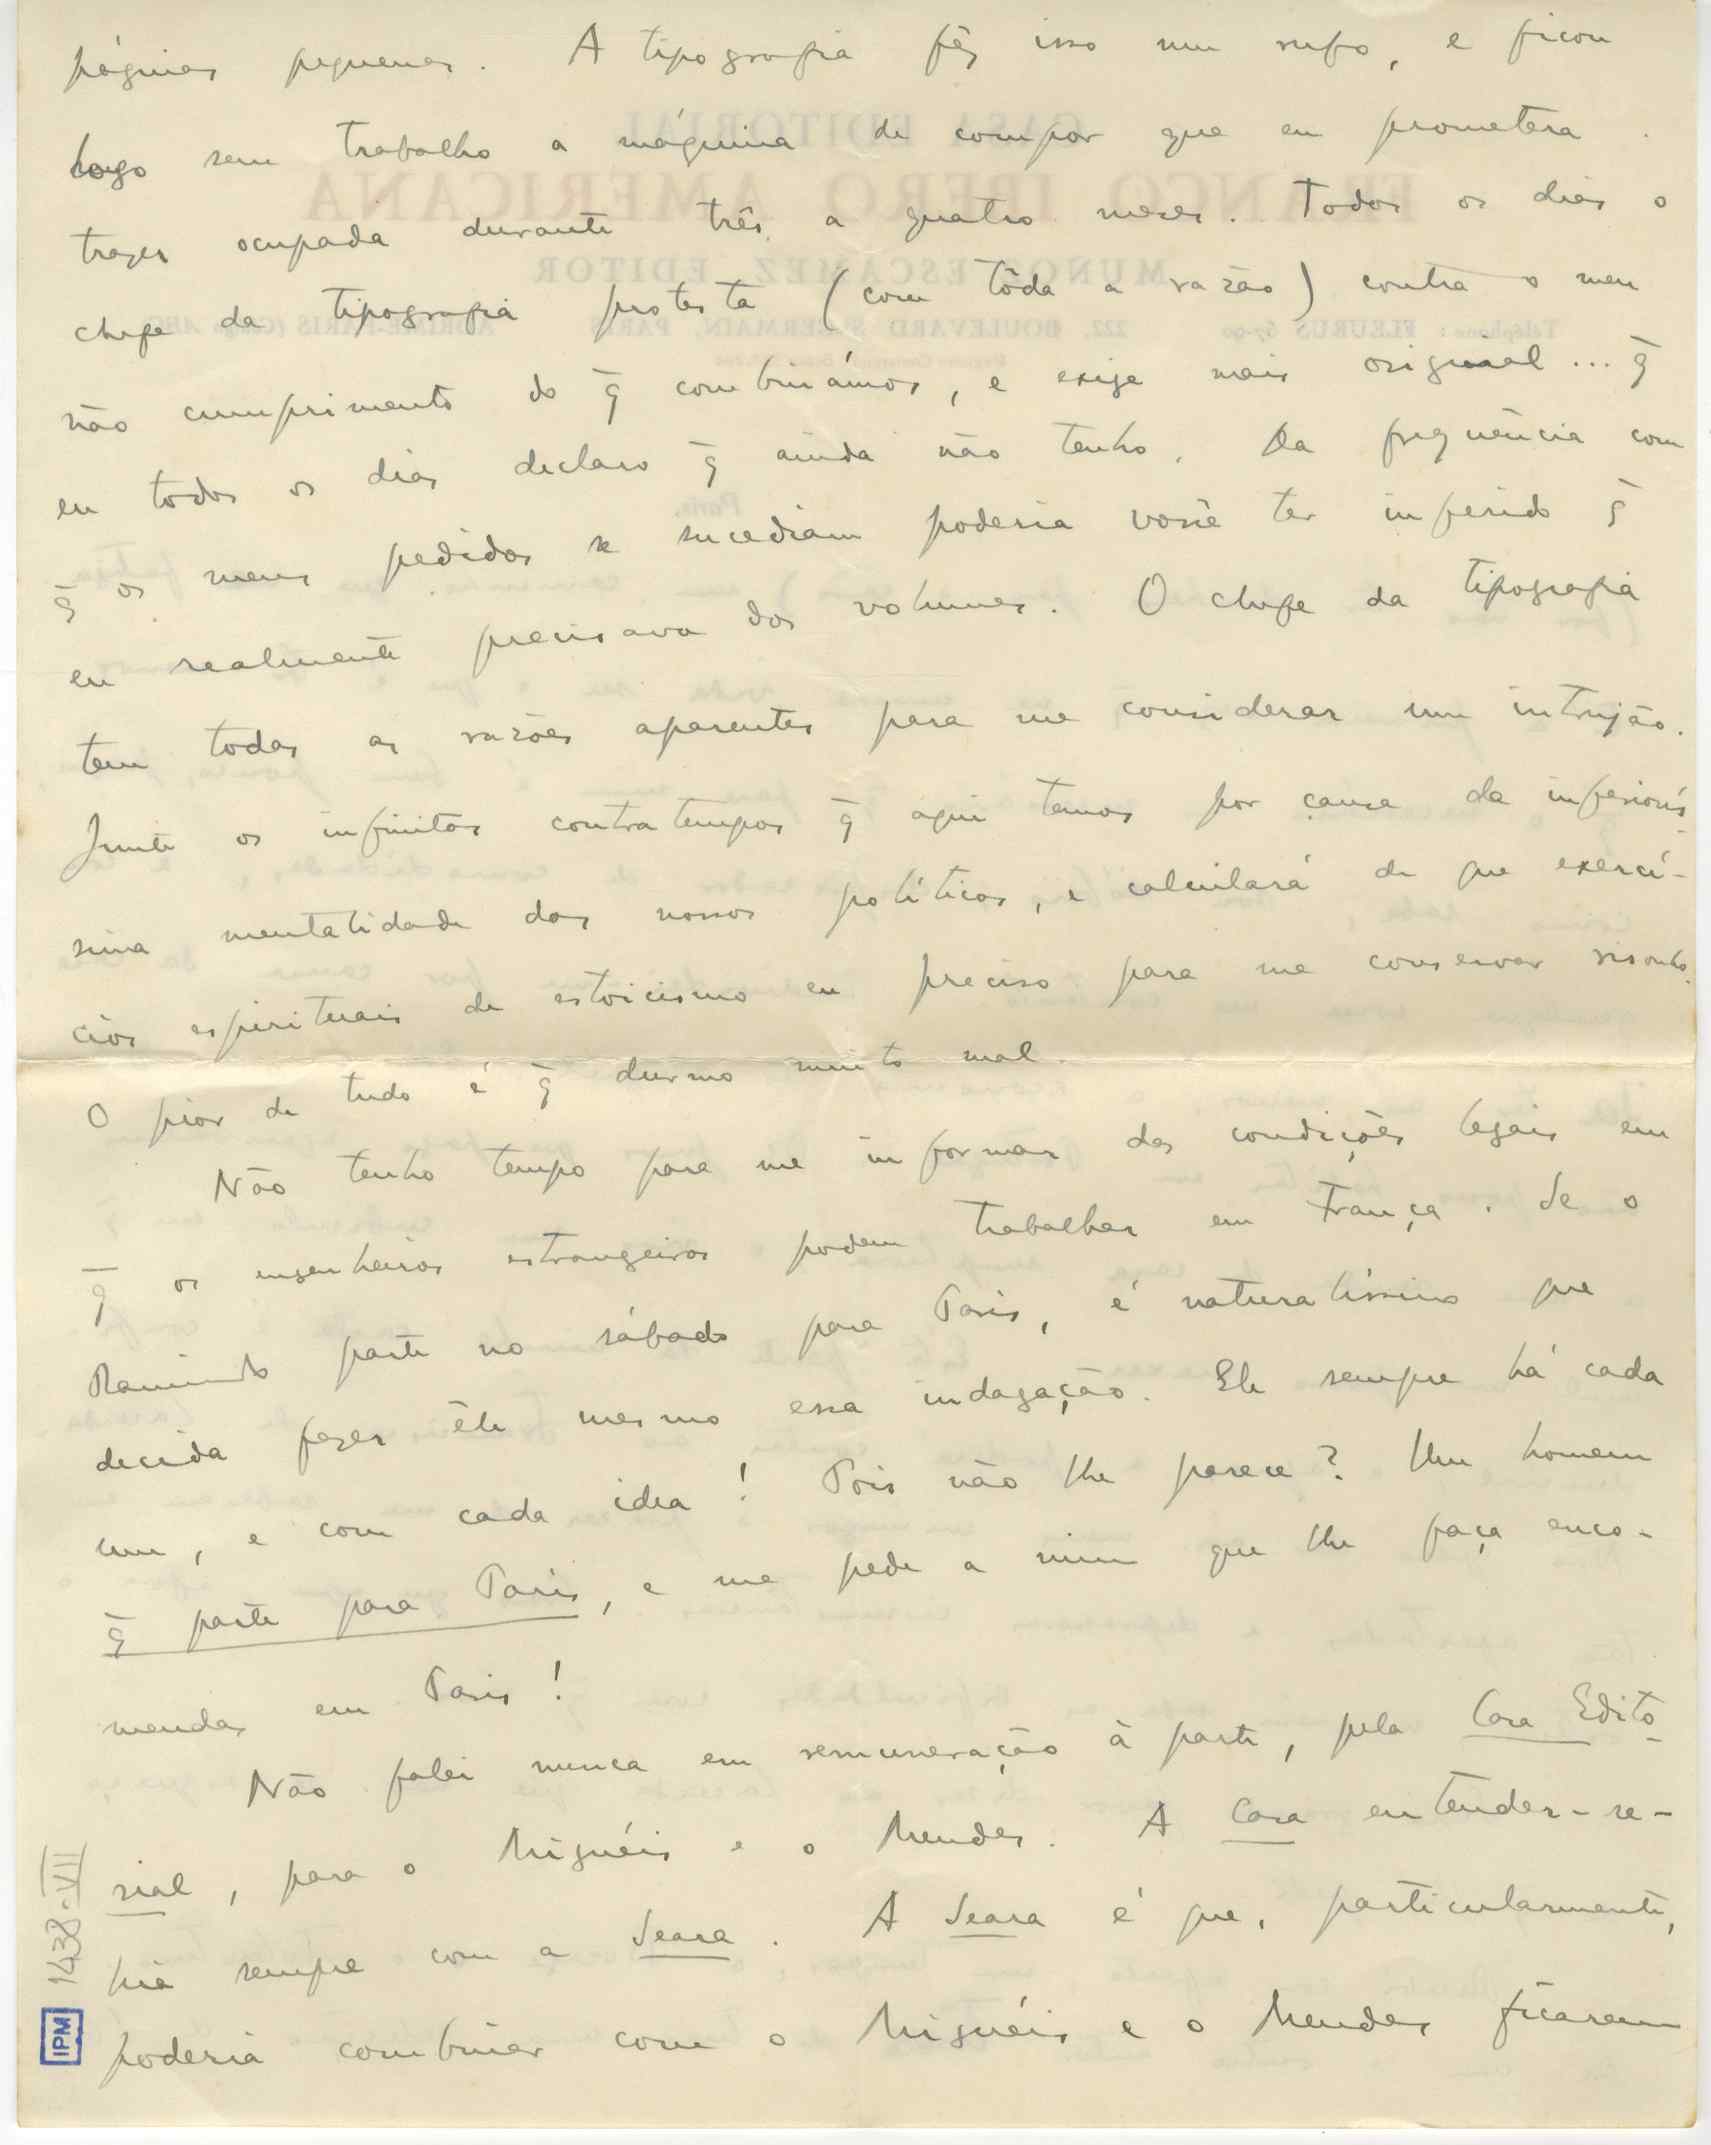 páginas pequenas. A tipografia fêz isso num rufo, e ficou
logo sem trabalho a máquina de compor que eu prometera
trazer ocupada durante três a quatro meses. Todos os dias o
chefe da tipografia protesta (com tôda a razão) contra o meu
não cumprimento do q̄ combinámos, e exige mais original... q̄
eu todos os dias declaro q̄ ainda não tenho. Da freqüência com
q̄ os meus pedidos se sucediam poderia você ter inferido q̄
eu realmente precisava dos volumes. O chefe da tipografia
tem todas as razões aparentes para me considerar um intrujão.
Junte os infinitos contratempos q̄ aqui temos por causa da inferiorís-
sima mentalidade dos nossos políticos, e calculará de que exercí-
cios espirituais de estoicismo eu preciso para me conservar risonho.
O pior de tudo é q̄ durmo muito mal.
Não tenho tempo para me informar das condições legais em
q̄ os engenheiros estrangeiros podem trabalhar em França. Se o
Ramiro parte no sábado para Paris, é naturalíssimo que
decida fazer êle mesmo essa indagação. Ele sempre há cada
um, e com cada idea! Pois não lhe parece? Um homem
q̄ parte para Paris, e me pede a mim que lhe faça enco-
mendas em Paris!
Não falei nunca em remuneração à parte, pela Casa Edito-
rial, para o Miguéis e o Mendes. A Casa entender-se-
hia sempre com a Seara. A Seara é que, particularmente,
poderia combinar com o Miguéis e o Mendes ficarem
1438-VII
IPM
CASA EDITORIAL
FRANCO IBERO AMERICANA
MUÑOZ ESCAMEZ, EDITOR
Téléphone: FLEURUS 67-90 222, BOULEVARD St-GERMAIN, PARIS
Paris,